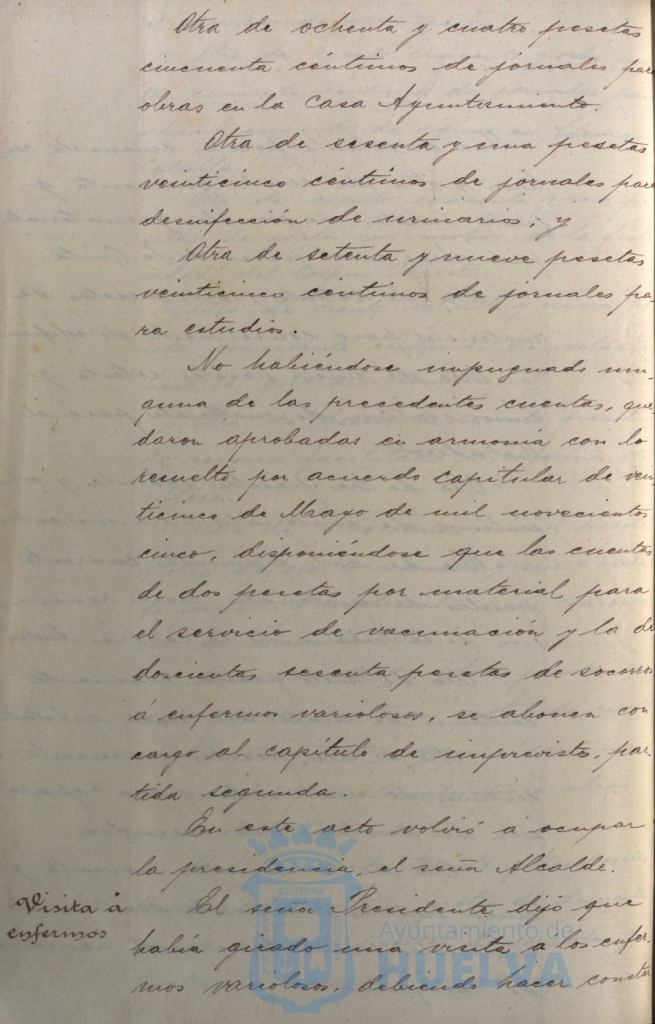 Otra de ochenta y cuatro pesetas
cincuenta céntimos de jornales para
obras en la Casa Ayuntamiento.
Otra de sesenta y una pesetas
veinticinco céntimos de jornales para
desinfección de urinarios; y
Otra de setenta y nueve pesetas
veinticinco céntimos de jornales pa-
ra estudios.
No habiéndose impugnado nin-
guna de las precedentes cuentas, que-
daron aprobadas en armonía con lo
resuelto por acuerdo capitular de vein-
ticinco de Mayo de mil novecientos
cinco, disponiéndose que las cuentas
de dos pesetas por material para
el servicio de vacunación y la de
doscientas sesenta pesetas de socorros
á enfermos variolosos, se abonen con
cargo al capítulo de imprevistos, par-
tida segunda.
En este acto volvió a ocupar
la presidencia, el señor Alcalde.
Visita á
enfermos
El señor Presidente dijo que
había girado una visita a los enfer-
mos variolosos, debiendo hacer constar
ET TERRÆ
Ayuntamiento de
HUELVA